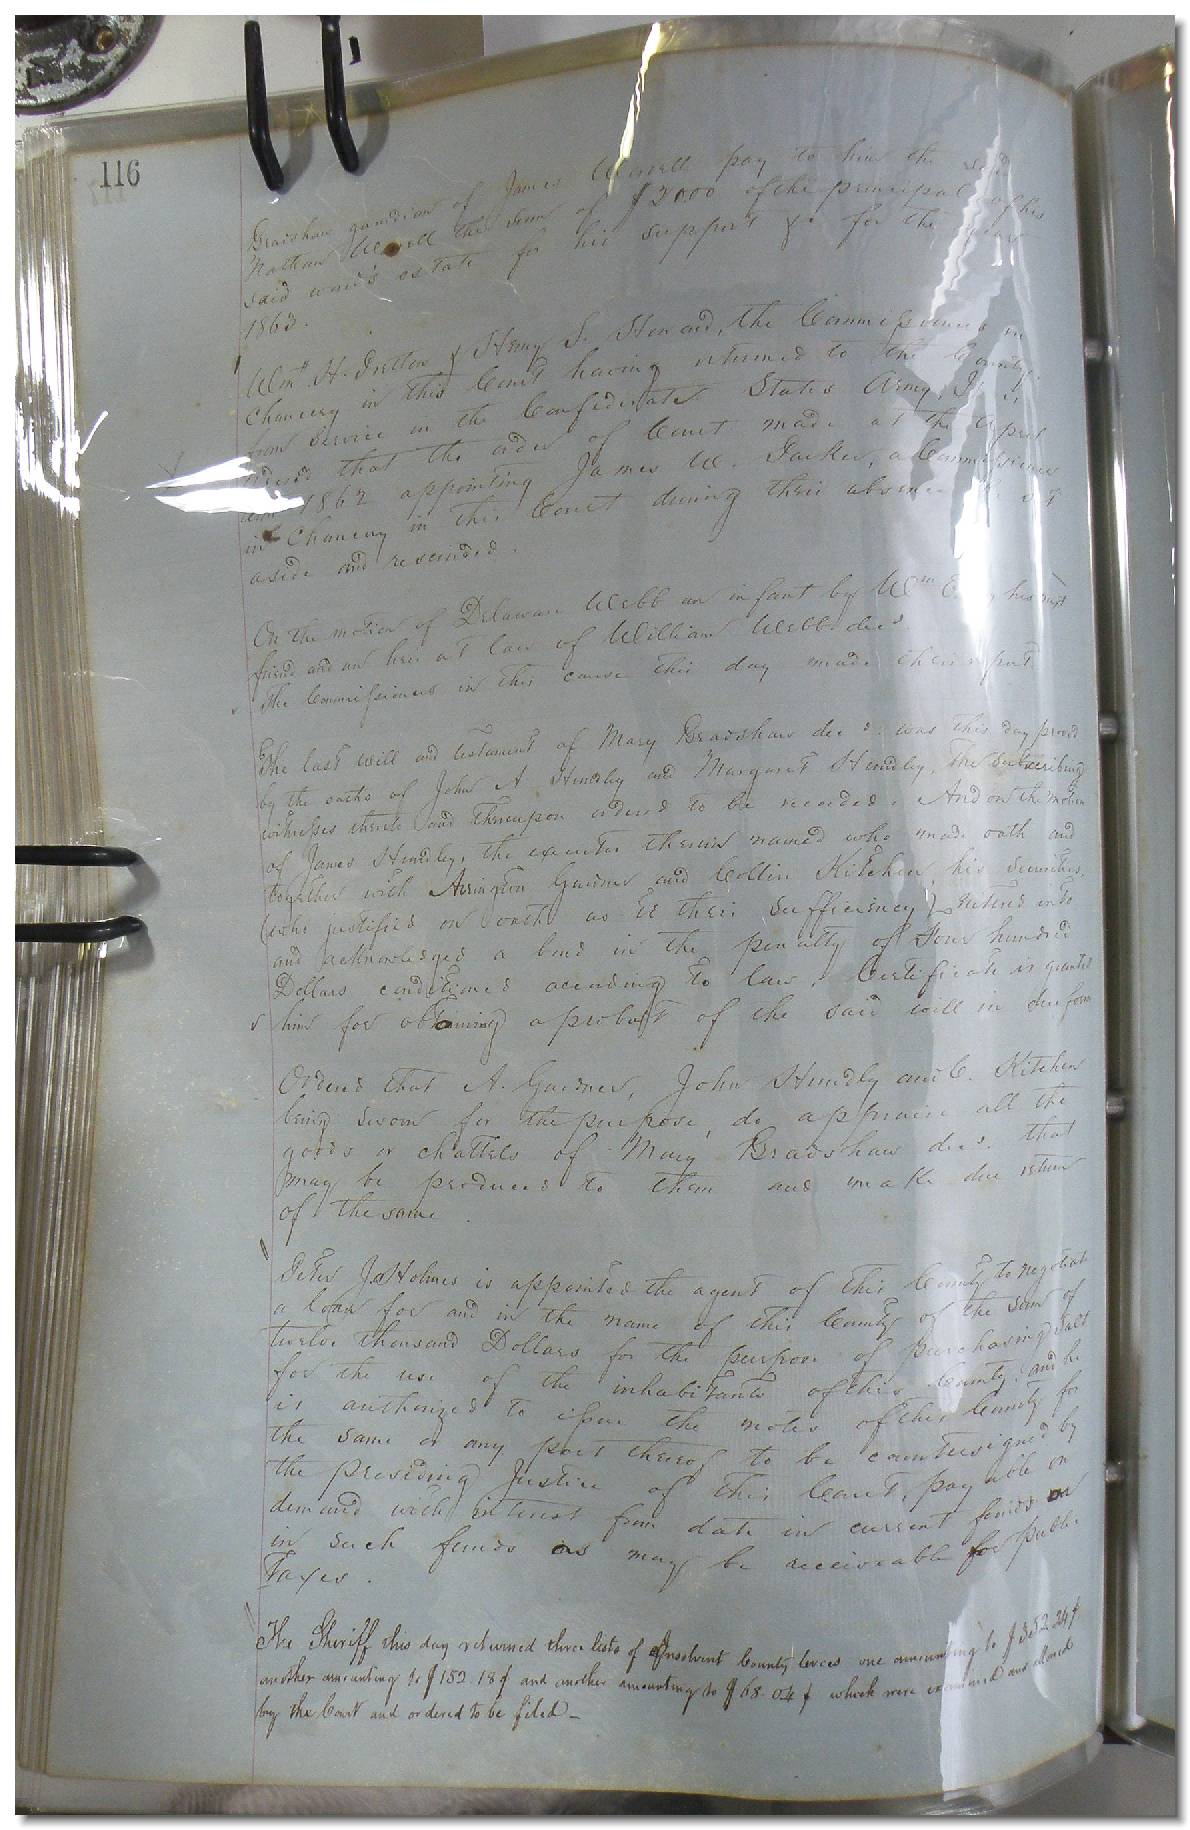 116
Bradshaw guardian of James Worrell pay to him the said
Nathan Worrell the sum of $3000 of the principal of his
said ward's estate for his support &c for the year
1863.
Wm. H. & Henry L. the Commissioners in
Chancery in this Court having returned to the County,
from service in the Confederate States Army, It is
ordered that the order of Court made at the April
term 1862 appointing James W. Parker, a Commissioner
in Chancery in this Court during their absence be set
aside and rescinded.
On the motion of Delaware Webb an infant by Wm his next
friend and an heir at law of William Webb decd.
The Commissioners in this cause this day made their report
The last will and testament of Mary Bradshaw decd. was this day proved
by the oaths of John A Hundley and Margaret Hundley, the subscribing
witnesses thereto and thereupon ordered to be recorded. And on the motion
of James Hundley, the executor therein named who made oath and
together with Arrington Gardner and Collin Kitchen, his securities,
(who justified on oath as to their sufficiency) entered into
and acknowledged a bond in the penalty of Four hundred
Dollars conditioned according to law, Certificate is granted
him for obtaining a probat of the said will in due form
Ordered that A. Gardner, John Hundly and C. Kitchen
being sworn for the purpose, do appraise all the
goods or chattels of Mary Bradshaw decd. that
may be produced to them and make due return
of the same.
Peter J. Holmes is appointed the agent of this County to negotiate
a loan for and in the name of this County of the sum of
twelve thousand Dollars for the purpose of purchasing Salt
for the use of the inhabitants of this County, and he
is authorized to issue the notes of this County for
the same or any part thereof to be countersigned by
the presiding Justice of this Court, payable on
demand with interest from date in current funds or
in such funds as may be receiveable for public
Taxes.
The Sheriff this day returned three lists of Insolvent County levies one amounting to $352.24¢
another amounting to $152.18¢ and another amounting to $68.04¢ which were examined and allowed
by the Court and ordered to be filed—